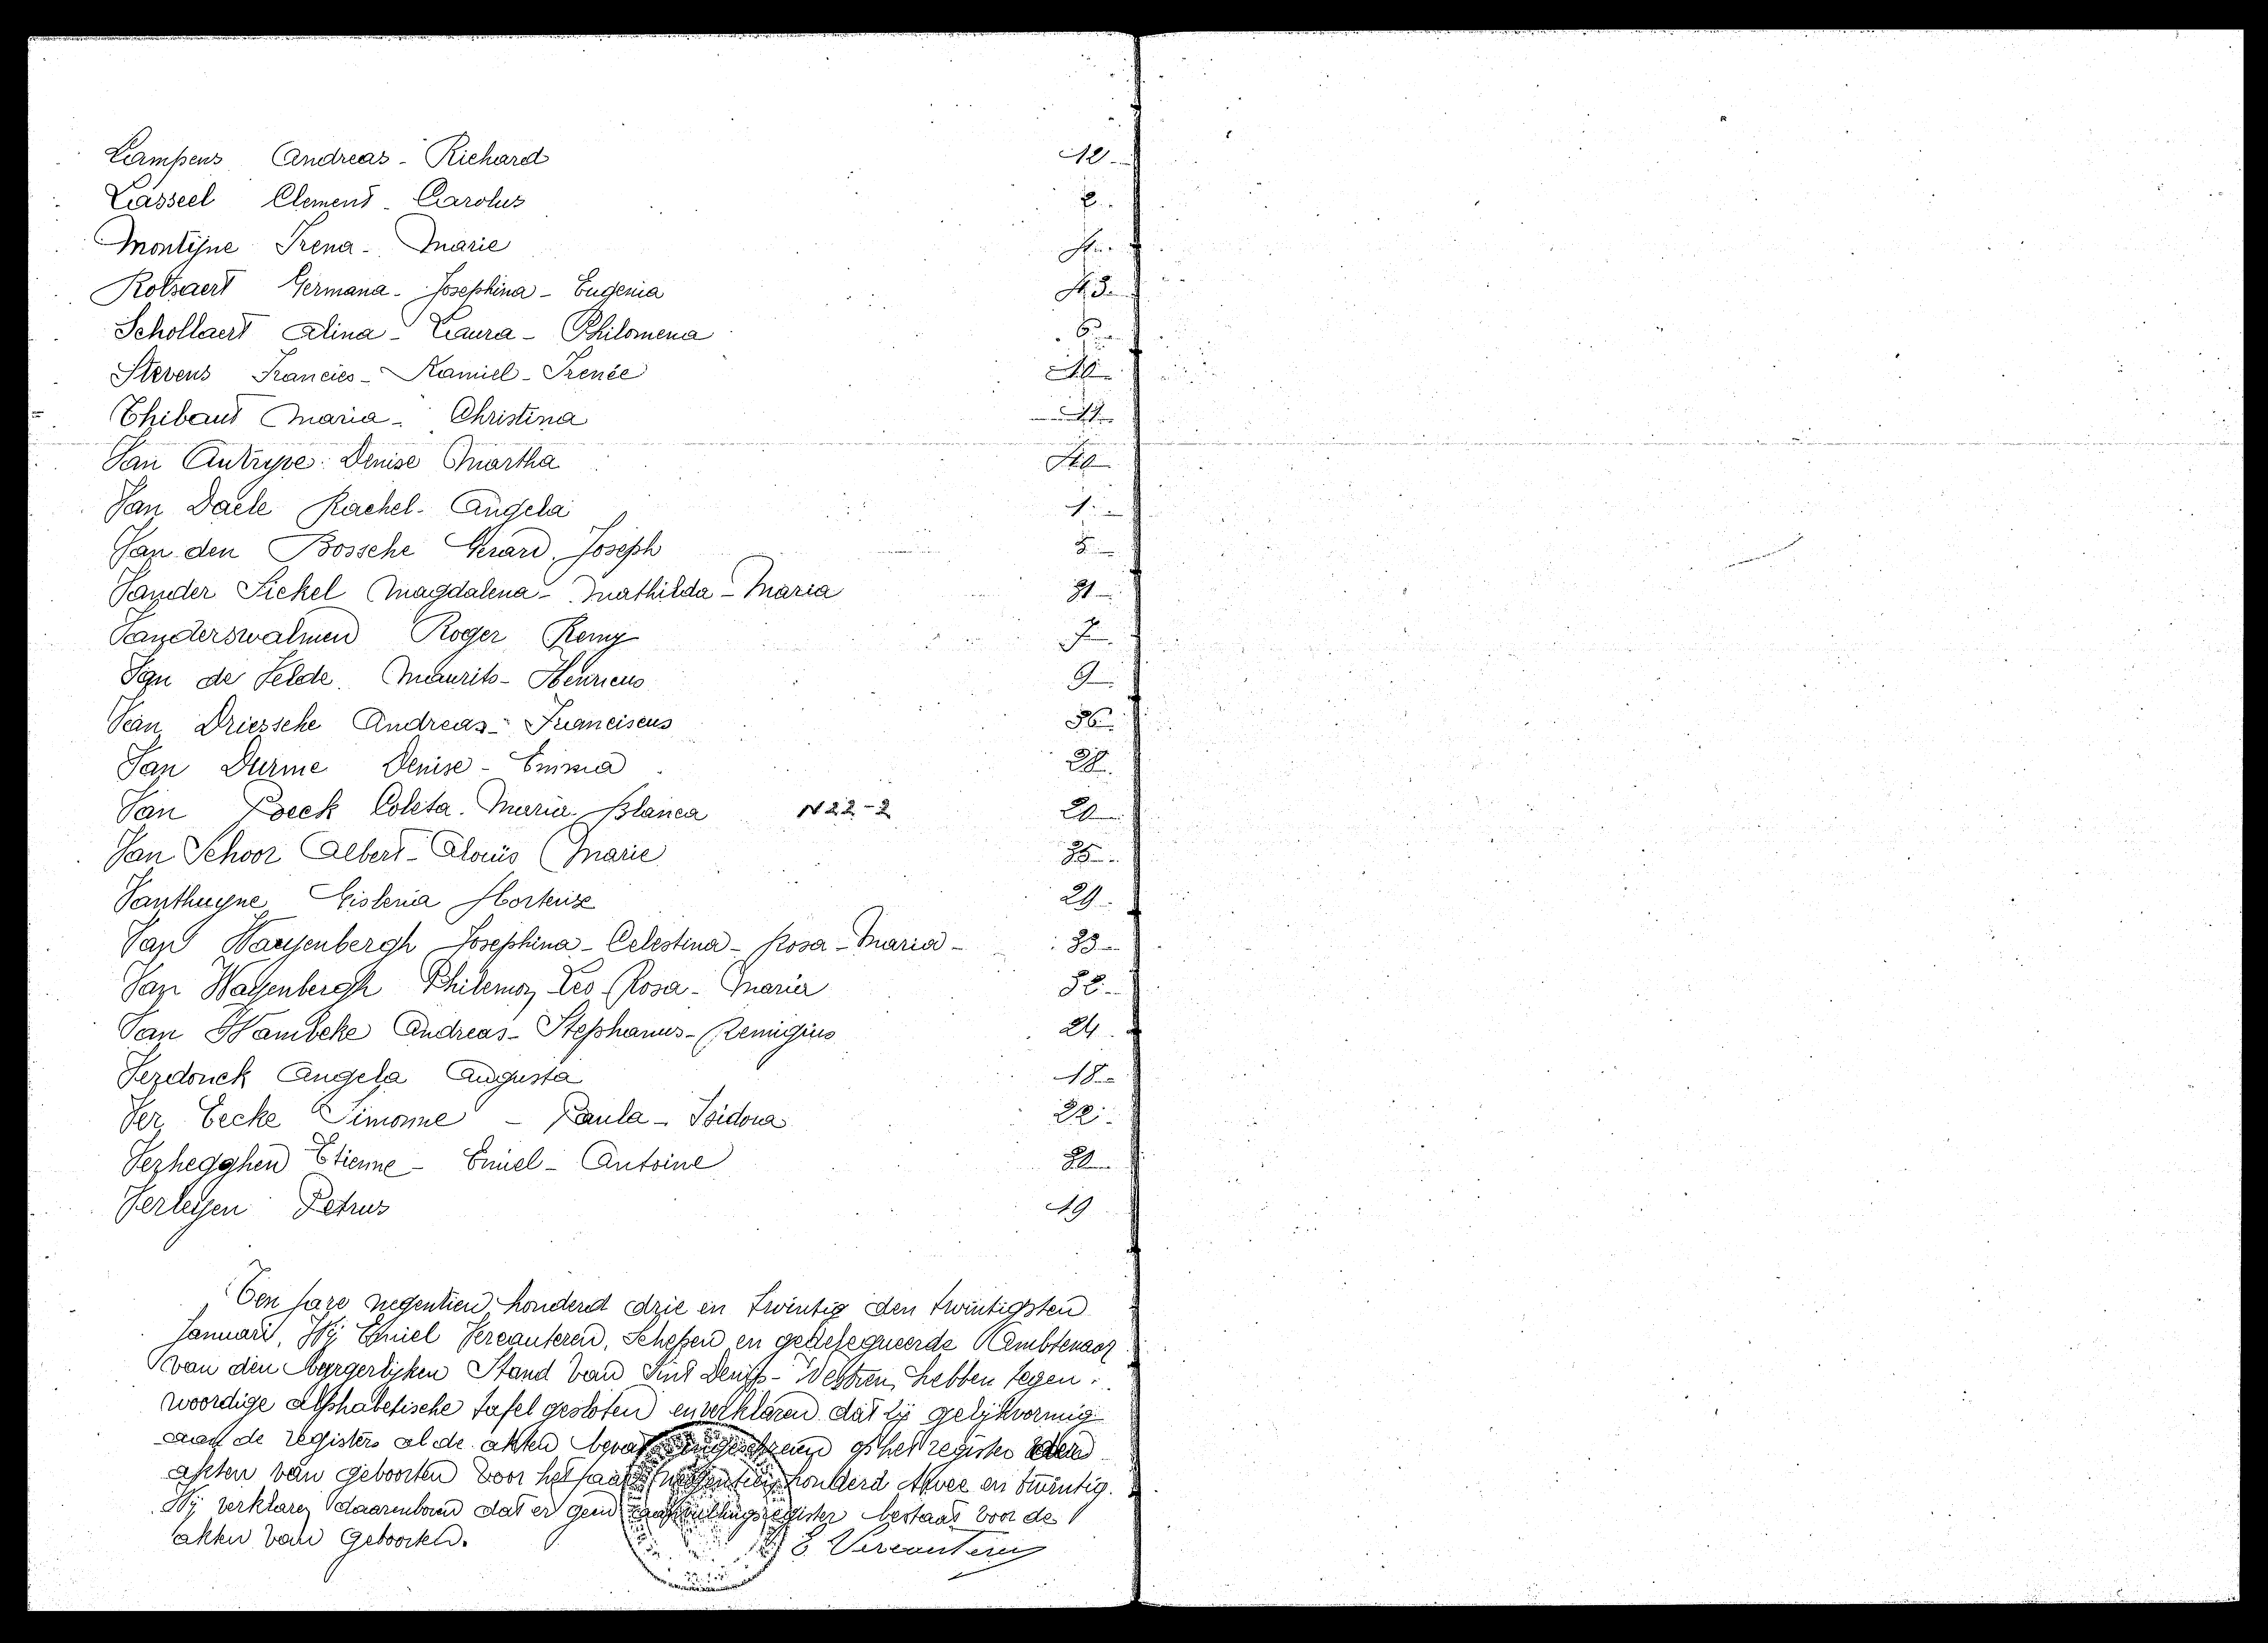 Lampens Andreas - Richard 12
Lasseel Clement - Carolus 2
Montijne Irena - Marie
Rotsaert Germana - Josephina - Eugenia 13
Schollaert Alina - Laura - Philomena 6
Stevens Francies - Kamiel - Irenée
Thibaut Maria - Christina
Van Autryve Denise Martha
Van Daele Rachel - Angela 1
Van den Bossche Gerard Joseph
Vander Sickel Magdalena - Mathilda - Maria 31
Vanderswalmen Roger Remy 7
Van de Velde Maurits - Henricus 9
Van Driessche Andreas - Franciscus 36
Van Durme Denise - Emma 28
Van Poeck Coleta - Maria - Blanca N 22-2 20
Van Schoor Albert - Aloïis Marie 35
Vanthuyne Gislenia Hortense 29
Van Wayenbergh Josephina - Celestina - Rosa - Maria - 33
Van Wayenbergh Philemon Leo - Rosa - Maria 32
Van Wambeke Andreas - Stephanus - Remigius 24
Verdonck Angela Augusta 18
Ver Eecke Simonne - Paula - Isidora 22
Verhegghen Etienne - Emiel - Antoine
Verleyen Petrus 19
Ten jare negentien honderd drie en twintig den twintigsten
Januari, Wij Emiel Vercauteren, Schepen en gedelegueerde Ambtenaar
van den burgerlijken Stand van Sint Denijs - Westrem, hebben tegen-
woordige alphabetische tafel gesloten en verklaren dat zij gelijkvormig
aan de registers al de akten bevat ingeschreven op het register der
akten van geboorten voor het jaar negentien honderd twee en twintig.
Wij verklaren daarenboven dat er geen aanvullingsregister bestaat voor de
akten van geboorten.
E. Vercauteren